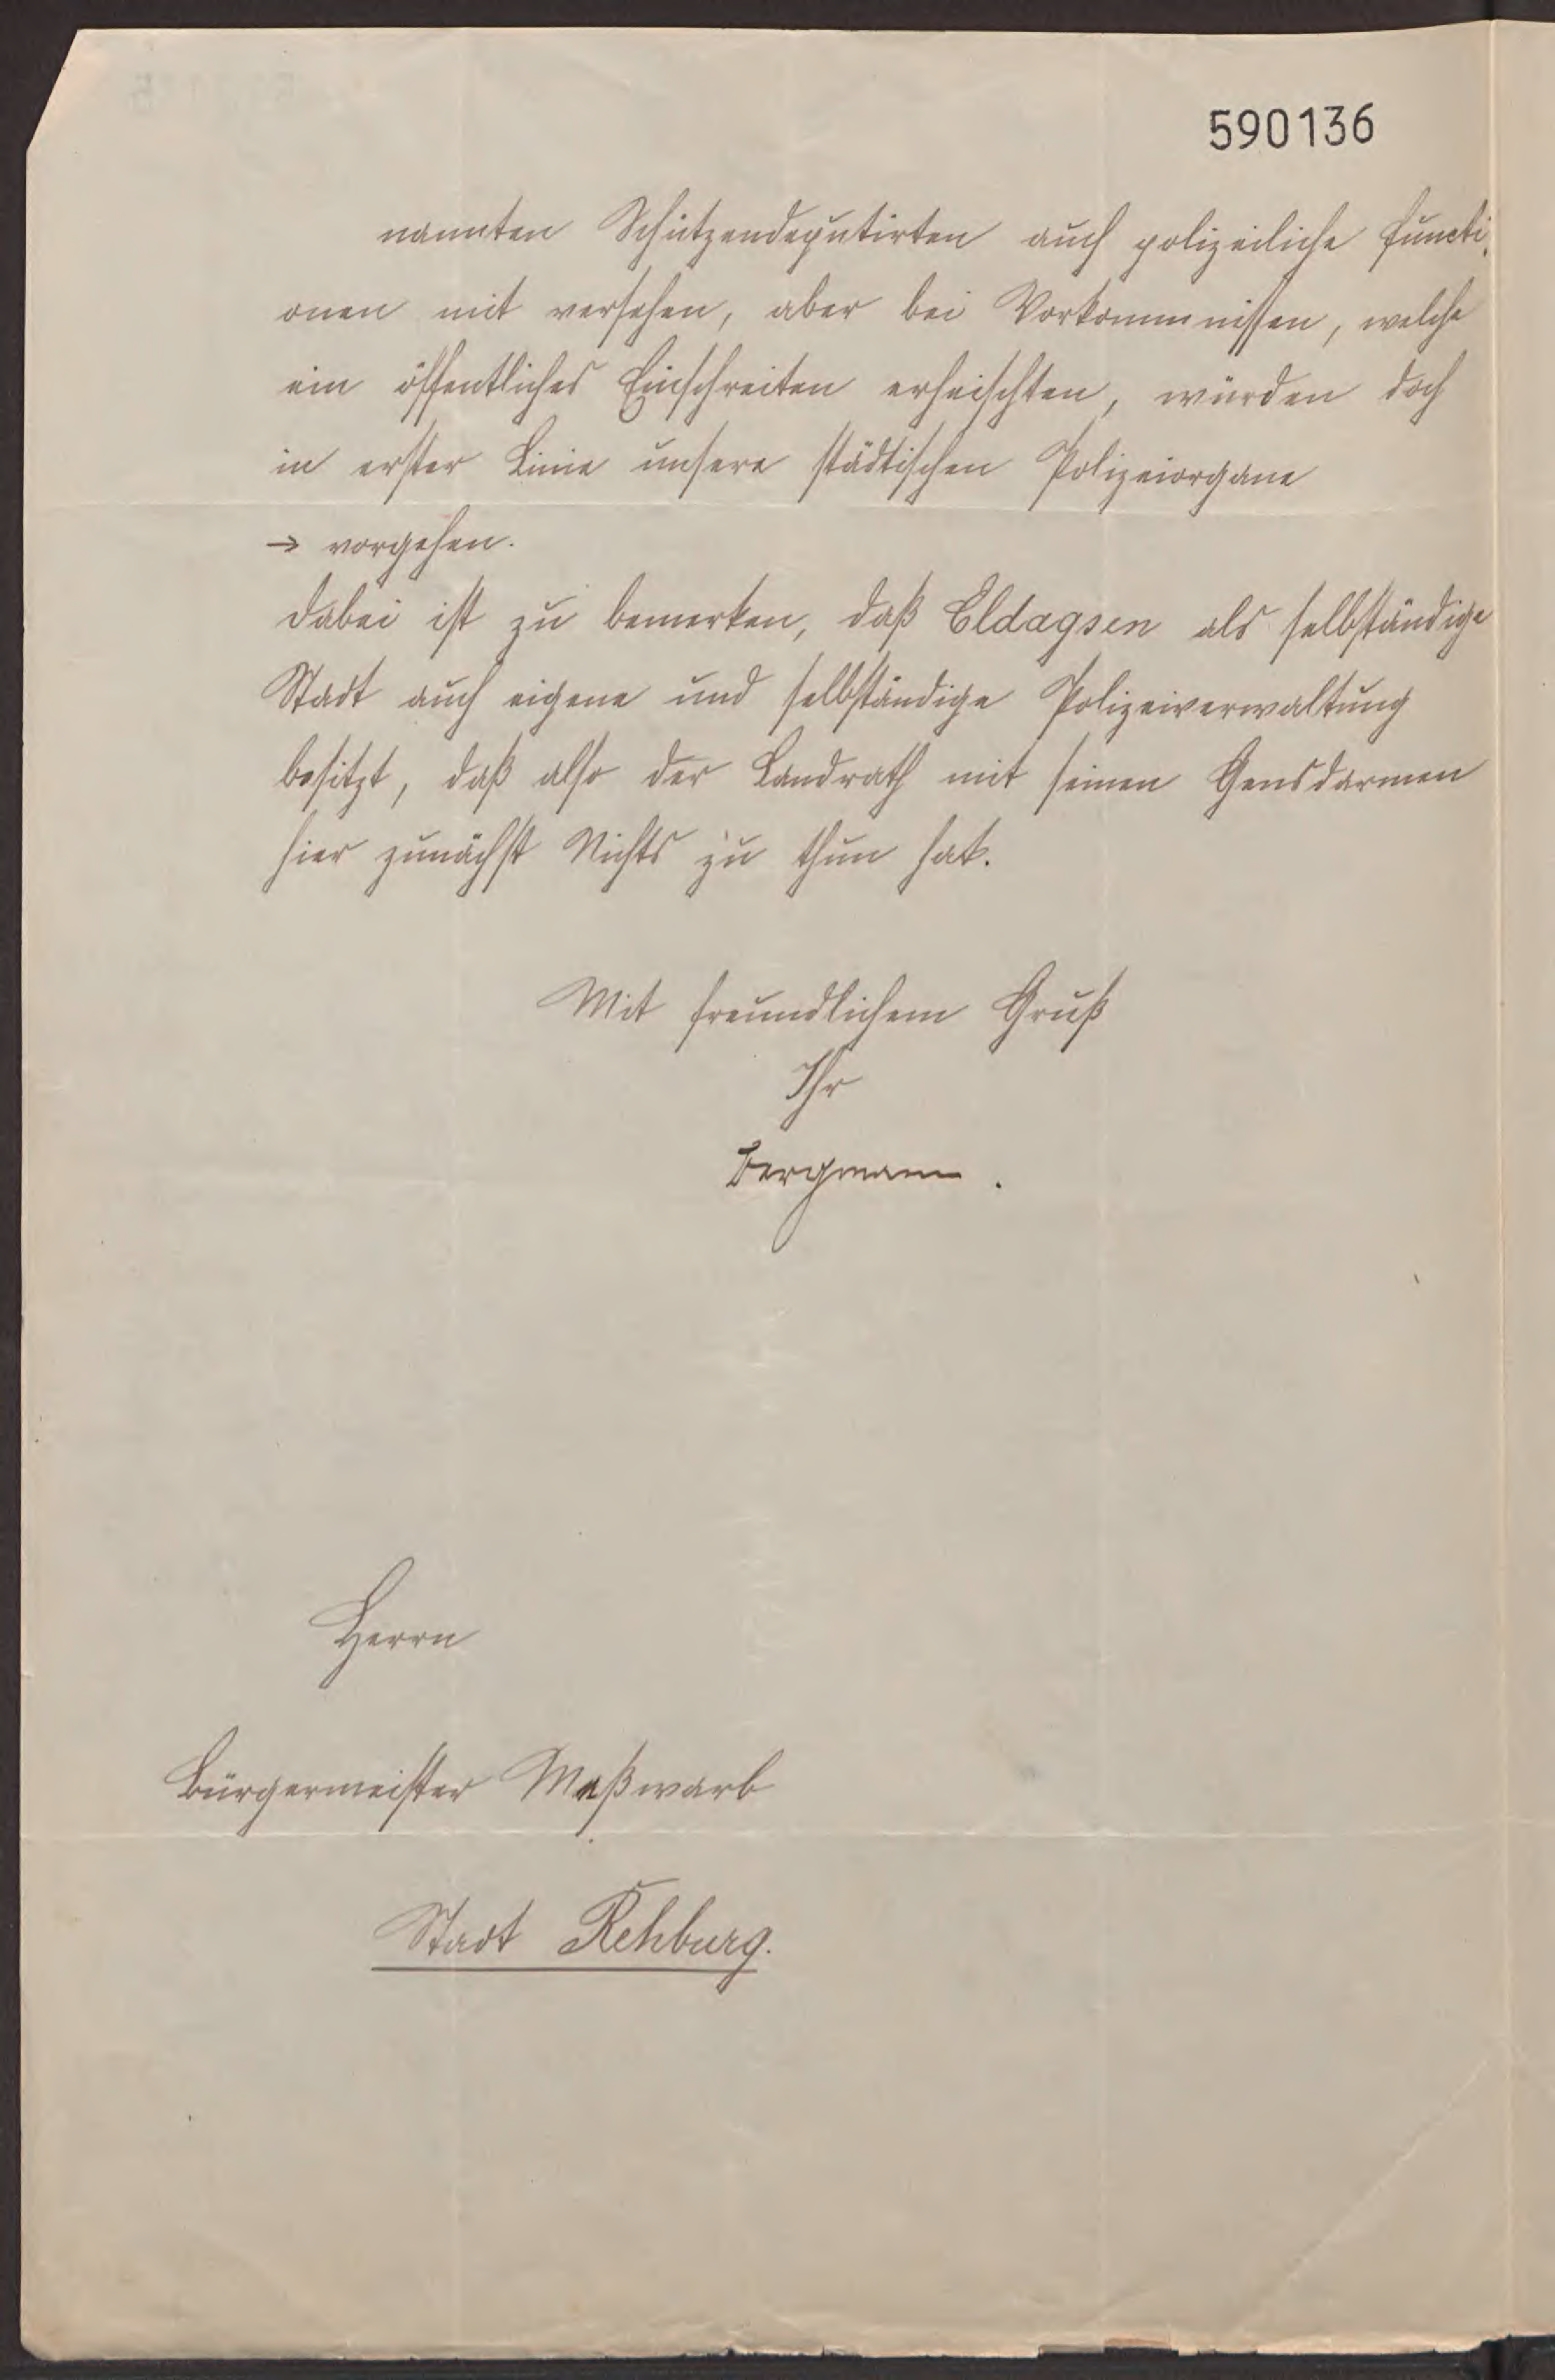 590136
nannten Schützendeputirten auch polizeiliche Functi-
onen mit versehen, aber bei Vorkommnissen, welche
ein öffentliches Einschreiten erheischten, würden doch
in erster Linie unsere städtischen Polizeiorgane
→ vorgehen.
Dabei ist zu bemerken, daß Eldagsen als selbständige
Stadt auch eigene und selbständige Polizeiverwaltung
besitzt, daß also der Landrath mit seinen Gensdarmen
hier zunächst Nichts zu thun hat.
Mit freundlichem Gruß
Ihr
Bergmann.
Herrn
Bürgermeister Meßwarb
Stadt Rehburg.